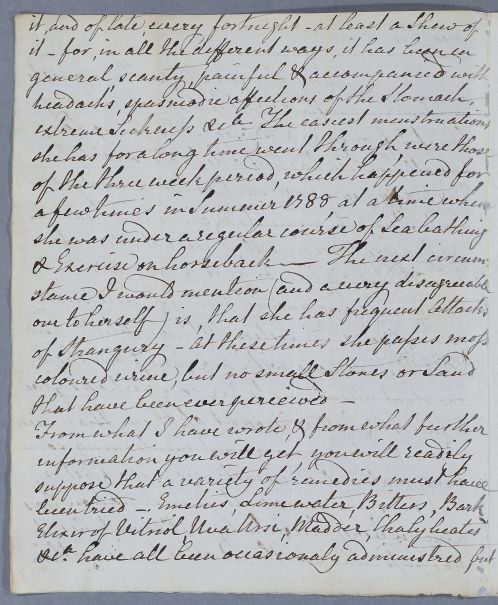 it, and of late, every fortnight - at least a Shew of
it - for, in all the different ways, it has been in
general, scanty, painful & accompanied with
headachs, spasmodic affections of the Stomach,
extreme Sickness &ca. The easiest menstruations
she has for a long time went through, were those
of the three week period, which happened for
a few times in Summer 1788 at a time when
she was under a regular course of Sea bathing
& Exercise on horseback — The next circum
stance I would mention (and a very disagreeable
one to herself) is, that she has frequent attacks
of Strangury - at these times she passes moss
coloured urine, but no small Stones or Sand
that have been ever perceived -
From what I have wrote, & from what further
information you will get, you will readily
suppose that a variety of remedies must have
been tried -. Emetics, Lime water, Bitters, Bark
Elixir of Vitriol, Uva Ursi, Madder, Chalybeates
&ca. have all been occasionaly administred but